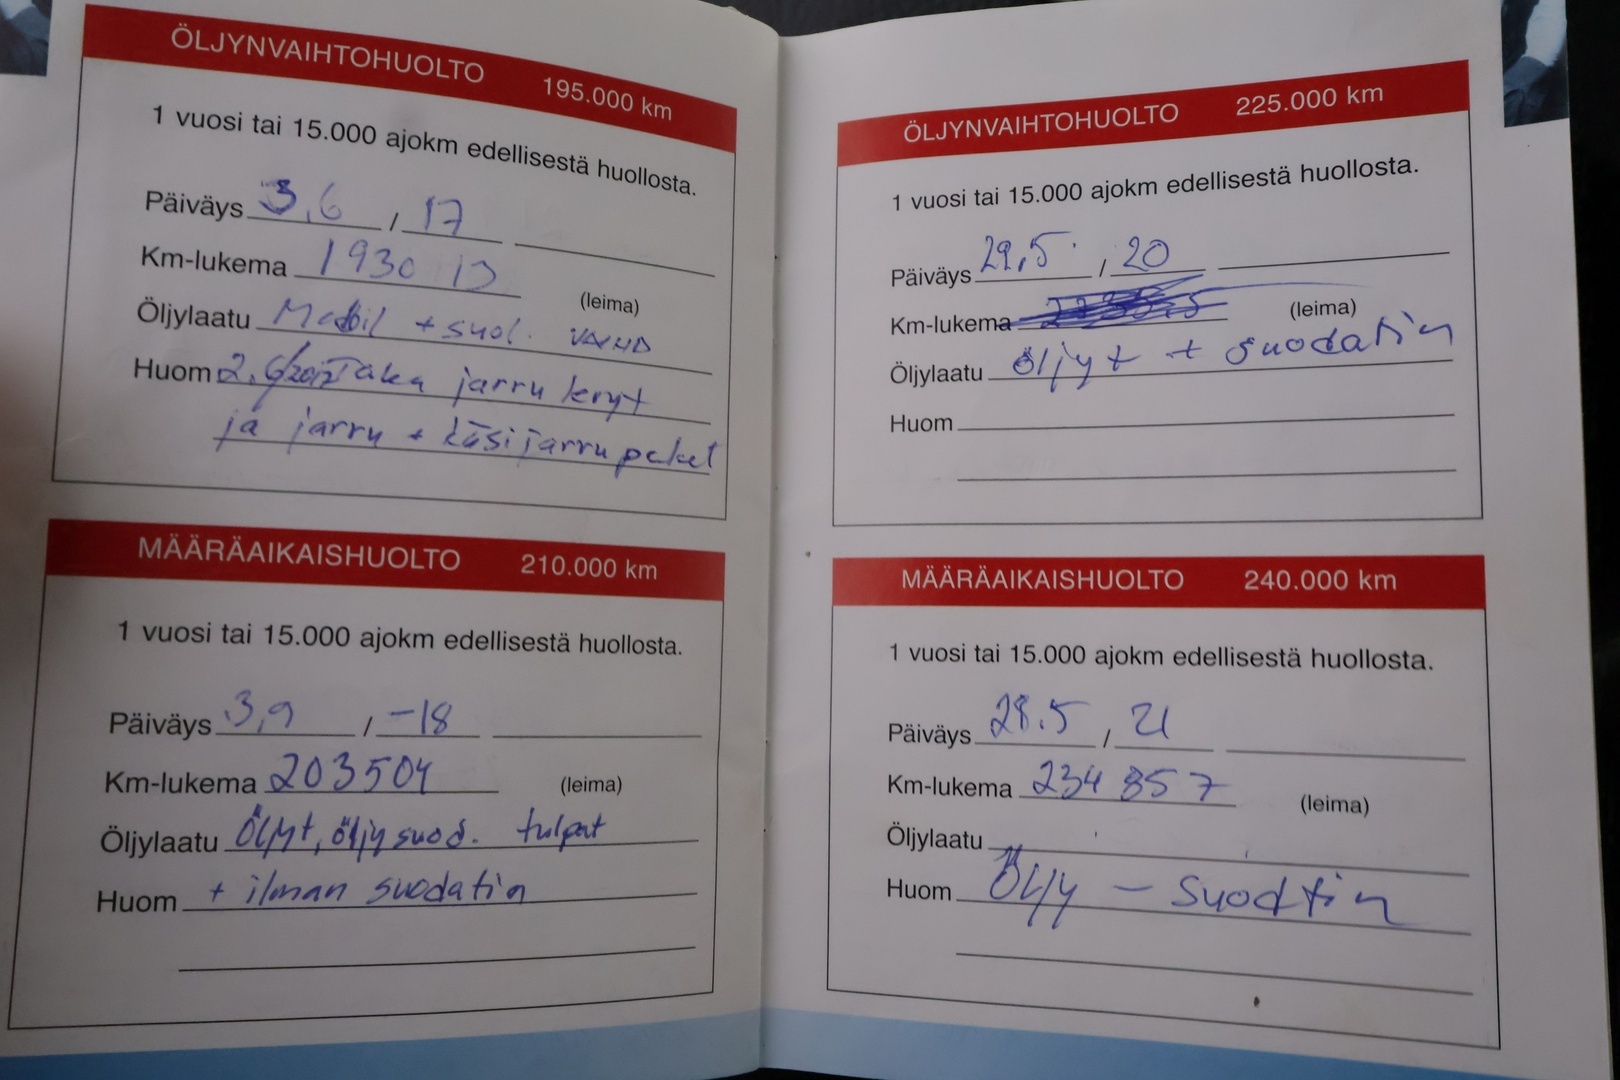 ÖLJYNVAIHTOHUOLTO 195.000 km
1 vuosi tai 15.000 ajokm edellisestä huollosta.
Päiväys 3,6 / 17
Km-lukema 193013
(leima)
Öljylaatu Mobil + suol. VAIHD
Huom 2.6/2017 Taka jarru levyt
ja jarru + käsijarru palat
MÄÄRÄAIKAISHUOLTO 210.000 km
1 vuosi tai 15.000 ajokm edellisestä huollosta.
Päiväys 3,9 / -18
Km-lukema 203504
(leima)
Öljylaatu Öljyt, öljy suod. tulpat
Huom + ilman suodatin
ÖLJYNVAIHTOHUOLTO 225.000 km
1 vuosi tai 15.000 ajokm edellisestä huollosta.
Päiväys 29,5 / 20
Km-lukema
(leima)
Öljylaatu öljyt + suodatin
Huom
MÄÄRÄAIKAISHUOLTO 240.000 km
1 vuosi tai 15.000 ajokm edellisestä huollosta.
Päiväys 28.5 / 21
Km-lukema 234 857
(leima)
Öljylaatu
Huom Öljy - Suodtin